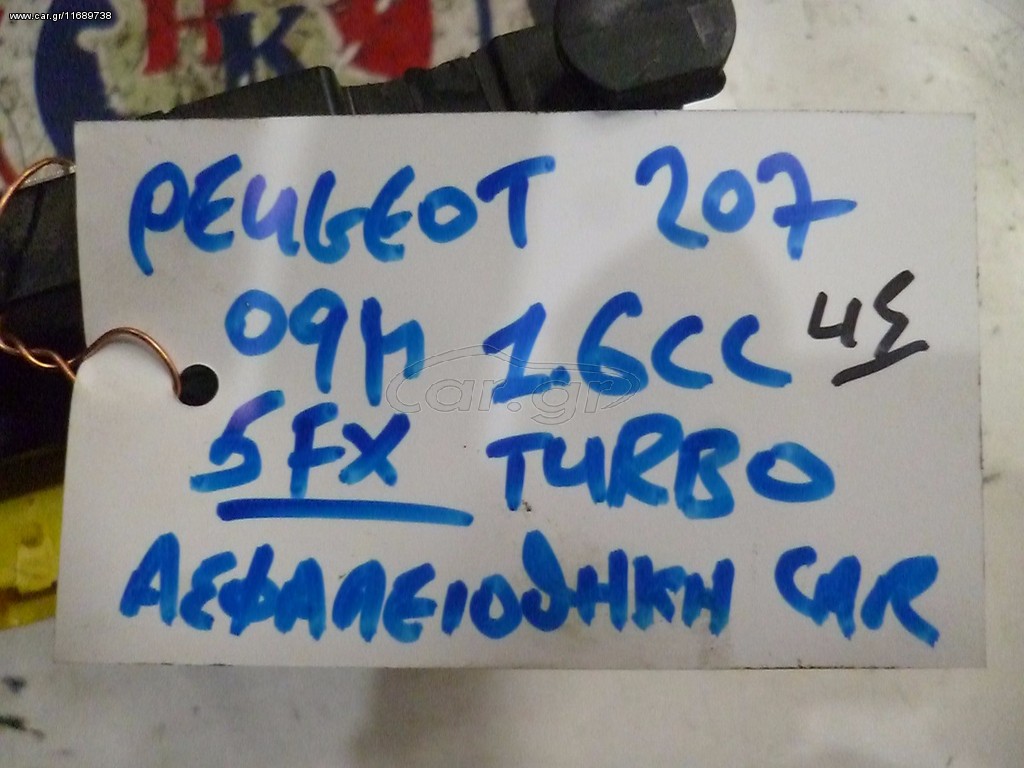 www.car.gr/11689738
HK
PEUGEOT 207
09μ 1.6CC 45
5FX TURBO
ΑΣΦΑΛΕΙΟΘΗΚΗ CAR
Car.gr